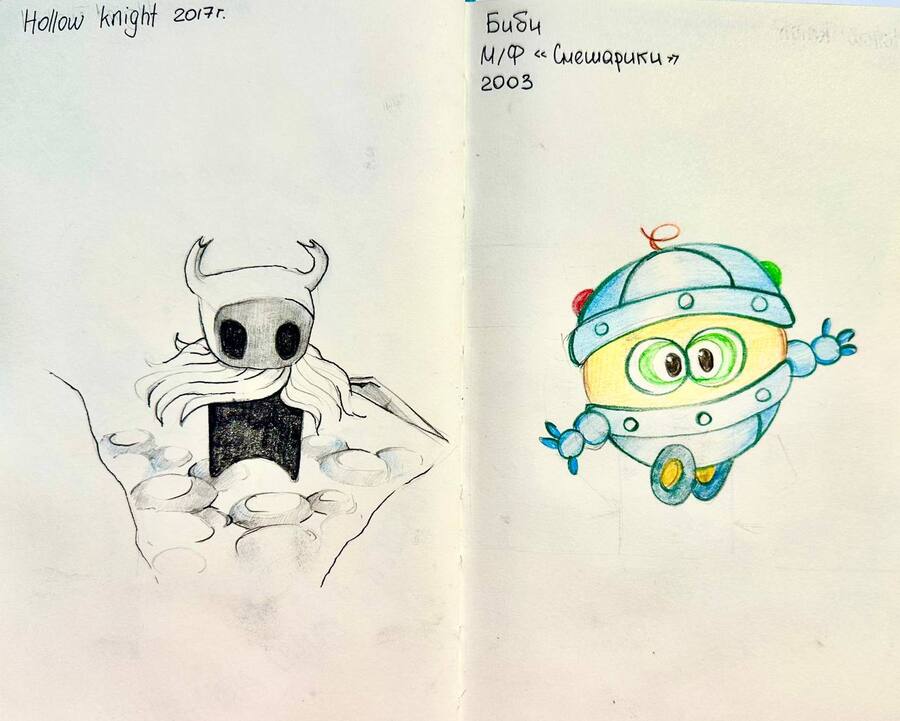 Hollow knight 2017г.
Биби
М/Ф «Смешарики»
2003